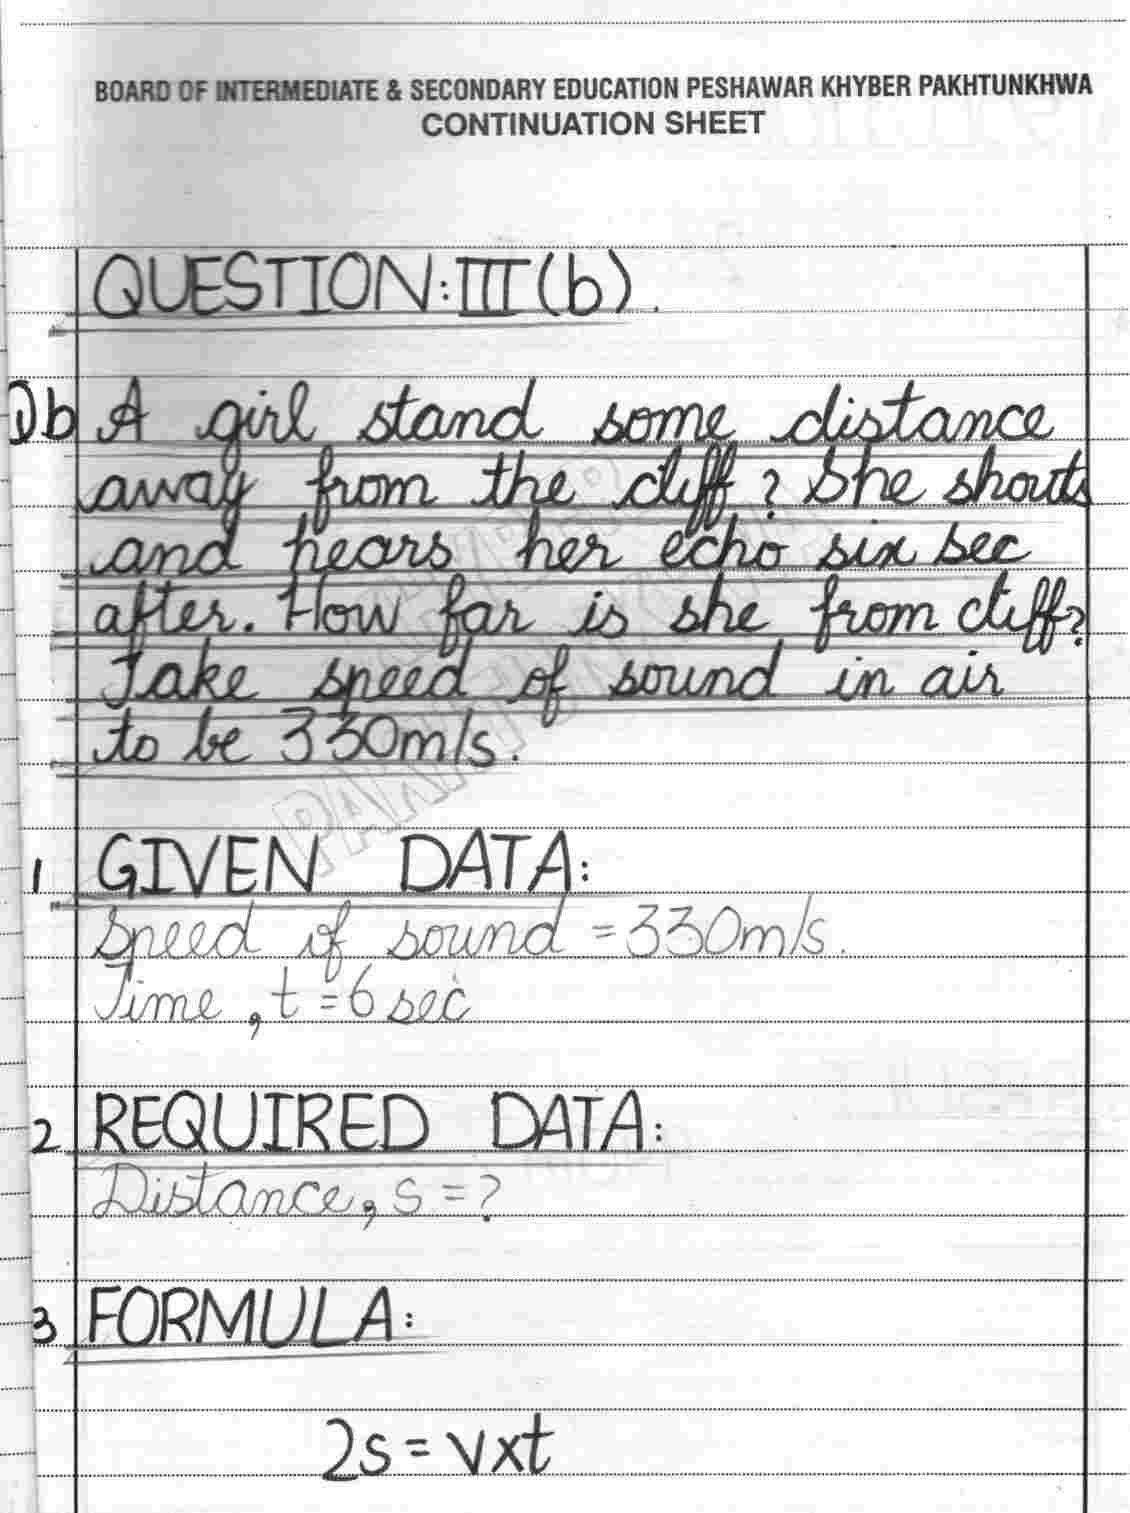 BOARD OF INTERMEDIATE & SECONDARY EDUCATION PESHAWAR KHYBER PAKHTUNKHWA
CONTINUATION SHEET
QUESTION: III (b).
Qb A girl stand some distance
away from the cliff? She shouts
and hears her echo six sec
after. How far is she from cliff?
Take speed of sound in air
to be 330m/s.
1 GIVEN DATA:
Speed of sound = 330m/s.
Time, t = 6 sec
2 REQUIRED DATA:
Distance, s = ?
3 FORMULA:
2s = v x t